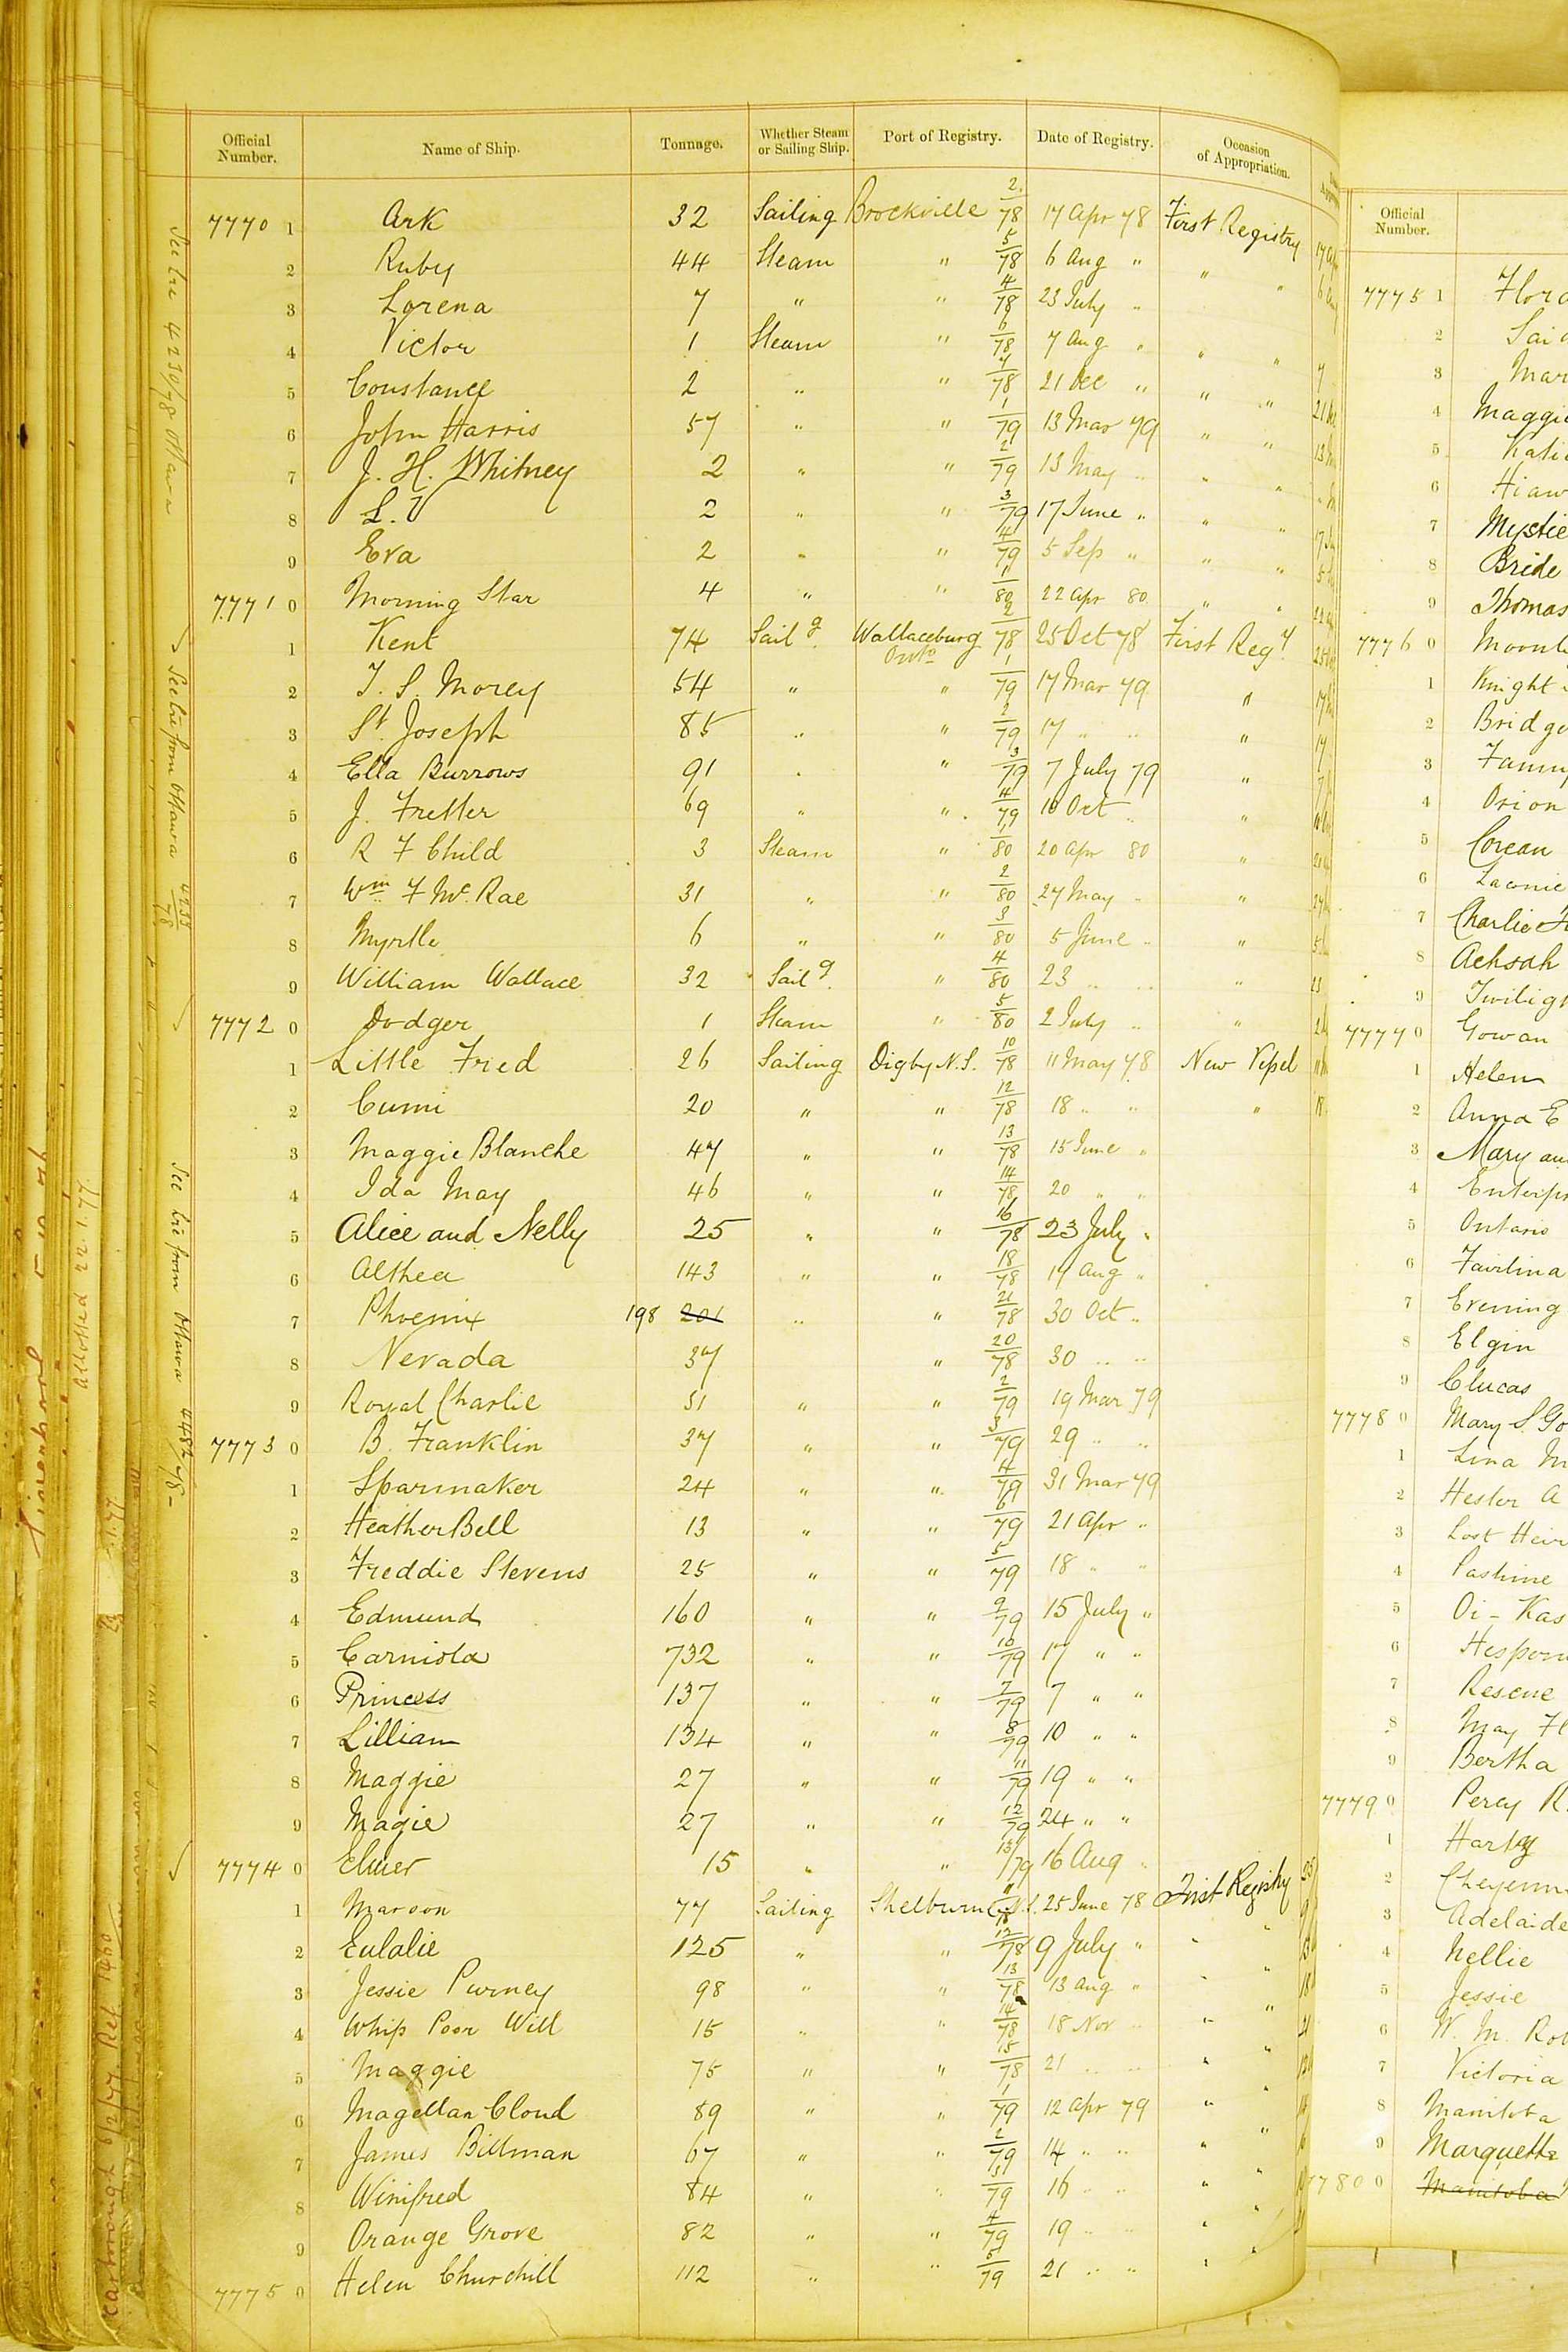 Official Number. Name of Ship. Tonnage. Whether Steam or Sailing Ship. Port of Registry. Date of Registry. Occasion of Appropriation.
7770 1 Ark 32 Sailing Brockville 2/78 17 Apr 78 First Registry
2 Ruby 44 Steam " 5/78 6 Aug " " "
3 Lorena 7 " " 4/78 23 July "
4 Victor 1 Steam " 6/78 7 Aug " " "
5 Constance 2 " " 7/78 21 Dec " " "
6 John Harris 57 " " 1/79 13 Mar 79 " "
7 J. H. Whitney 2 " " 2/79 13 May " " "
8 2 " " 3/79 17 June " " "
9 Eva 2 " " 4/79 5 Sep " " "
7771 0 Morning Star 4 " " 1/80 22 Apr 80 " "
1 Kent 74 Sailg Wallaceburg Onto 2/78 25 Oct 78 First Regy
2 T. S. Morey 54 " " 1/79 17 Mar 79 "
3 St. Joseph 85 " " 2/79 17 " " "
4 Ella Burrows 91 " " 3/79 7 July 79 "
5 J. Fretter 69 " " 4/79 10 Oct " "
6 R F Child 3 Steam " 1/80 20 Apr 80 "
7 Wm F Mc Rae 31 " " 2/80 27 May " "
8 Myrtle 6 " " 3/80 5 June " "
9 William Wallace 32 Sailg " 4/80 23 " " "
7772 0 Dodger 1 Steam " 5/80 2 July " "
1 Little Fried 26 Sailing Digby N.S. 10/78 11 May 78 New Vessel
2 Cumi 20 " " 12/78 18 " " "
3 Maggie Blanche 47 " " 13/78 15 June "
4 Ida May 46 " " 14/78 20 " "
5 Alice and Nelly 25 " " 16/78 23 July "
6 Althea 143 " " 18/78 17 Aug "
7 Phoenix 198 201 " " 21/78 30 Oct "
8 Nevada 37 " 20/78 30 " "
9 Royal Charlie 51 " " 2/79 19 Mar 79
7773 0 B. Franklin 37 " " 3/79 29 " "
1 Sparmaker 24 " " 4/79 31 Mar 79
2 Heather Bell 13 " " 6/79 21 Apr "
3 Freddie Stevens 25 " " 5/79 18 " "
4 Edmund 160 " " 9/79 15 July "
5 Carniola 732 " " 10/79 17 " "
6 Princess 137 " " 7/79 7 " "
7 Lilliam 134 " " 8/79 10 " "
8 Maggie 27 " " 11/79 19 " "
9 Magie 27 " " 12/79 24 " "
7774 0 Elmer 15 " " 13/79 16 Aug "
1 Maroon 77 Sailing Shelburne N.S. 25 June 78 First Registry
2 Eulalie 125 " " 12/78 9 July " " "
3 Jessie Purney 98 " " 13/78 13 Aug " " "
4 Whip Poor Will 15 " " 14/78 18 Nov " " "
5 Maggie 75 " " 15/78 21 " " " "
6 Magellan Cloud 89 " " 1/79 12 Apr 79 " "
7 James Billman 67 " " 2/79 14 " " " "
8 Winifred 84 " " 3/79 16 " " " "
9 Orange Grove 82 " " 4/79 19 " " " "
7775 0 Helen Churchill 112 " " 5/79 21 " " " "
See Lre 4230/78 Ottawa
See Lre from Ottawa 4233/78
See Lre from Ottawa 4482/78 -
Allotted 22.1.77
Official Number.
7775 1
2
3 Mar
4 Maggie
5
6 Hiaw
7 Mystic
8 Bride
9 Thomas
7776 0
1 Knight
2 Bridge
3 Fanny
4 Orion
5 Corean
6 Laonic
7 Charlie
8 Achsah
9 Twiligh
7777 0 Gowan
1 Helen
2 Anna E
3 Mary an
4 Enterpr
5 Ontario
6 Fairlina
7 Evening
8 Elgin
9 Clucas
7778 0 Mary S. Go
1 Lina M
2 Hester A
3 Lost Heir
4 Pastime
5 Oi - Kas
6 Hesper
7 Rescue
8 May Fl
9 Bertha
7779 0 Percy R.
1
2 Cheyenn
3 Adelaide
4 Nellie
5 Jessie
6 W. M. Rob
7 Victoria
8 Manitoba
9 Marquette
7780 0 Manitoba